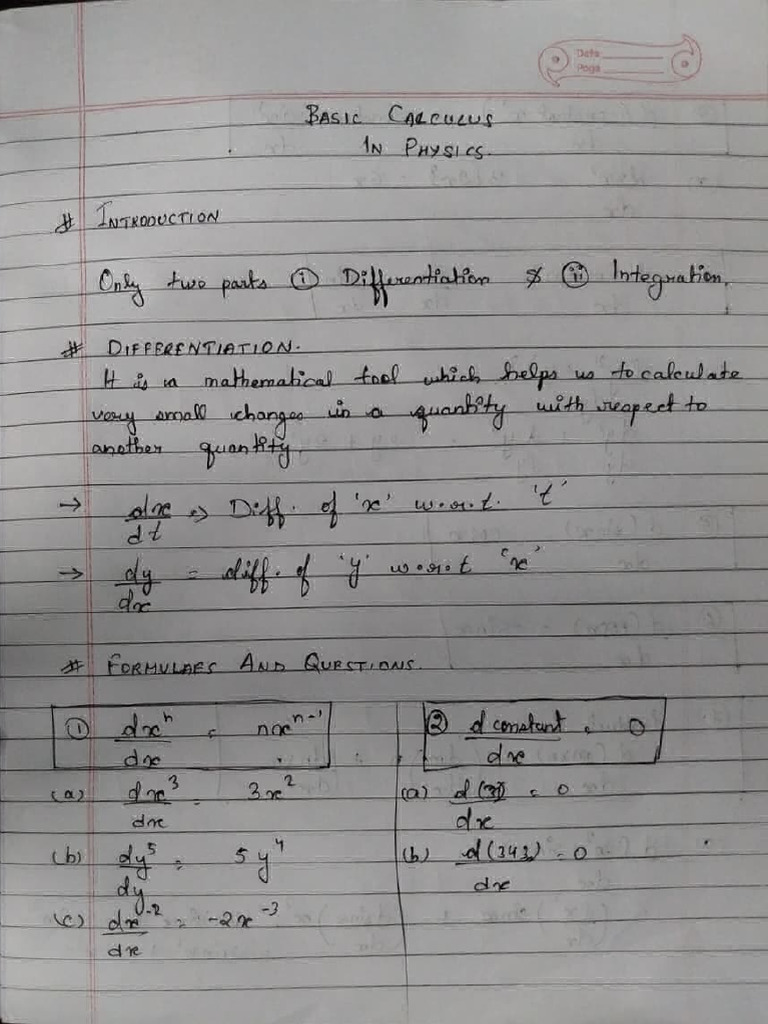 Date
Page
BASIC CALCULUS
IN PHYSICS.
# INTRODUCTION
Only two parts ⓘ Differentiation & ⓘⓘ Integration.
# DIFFERENTIATION.
It is a mathematical tool which helps us to calculate
very small changes in a quantity with respect to
another quantity.
→ dx/dt => Diff. of 'x' w.r.t. 't'
→ dy/dx = diff. of 'y' w.r.t 'x'
# FORMULAES AND QUESTIONS.
① dxⁿ/dx = nxⁿ⁻¹
(a) dx³/dx = 3x²
(b) dy⁵/dy = 5y⁴
(c) dx⁻²/dx = -2x⁻³
② d constant/dx = 0
(a) d(3)/dx = 0
(b) d(343)/dx = 0